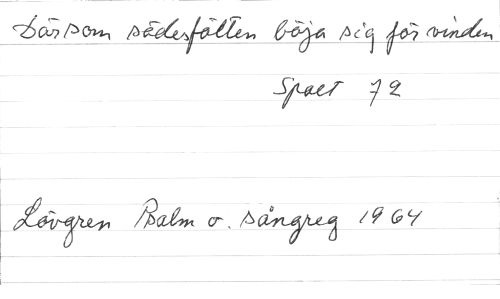 Därsom sädesfälten böja sig för vinden
Spalt 72
Lövgren Psalm o. sångreg 1964